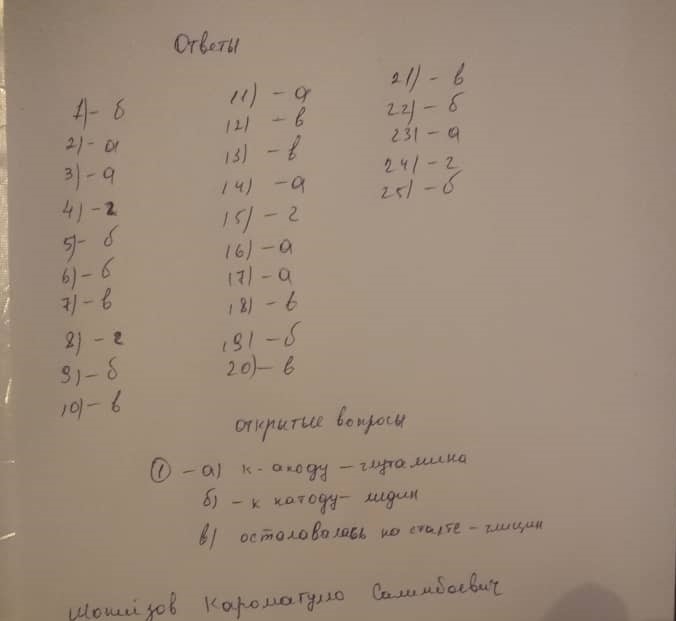 Ответы
1) - б
2) - а
3) - а
4) - г
5) - б
6) - б
7) - в
8) - г
9) - б
10) - в
11) - а
12) - в
13) - в
14) - а
15) - г
16) - а
17) - а
18) - в
19) - б
20) - в
21) - в
22) - б
23) - а
24) - г
25) - б
открытые вопросы
① - а) к - аноду - глутамина
б) - к катоду - лидин
в) осталавалась на старте - глицин
Кароматулло Салимбоевич